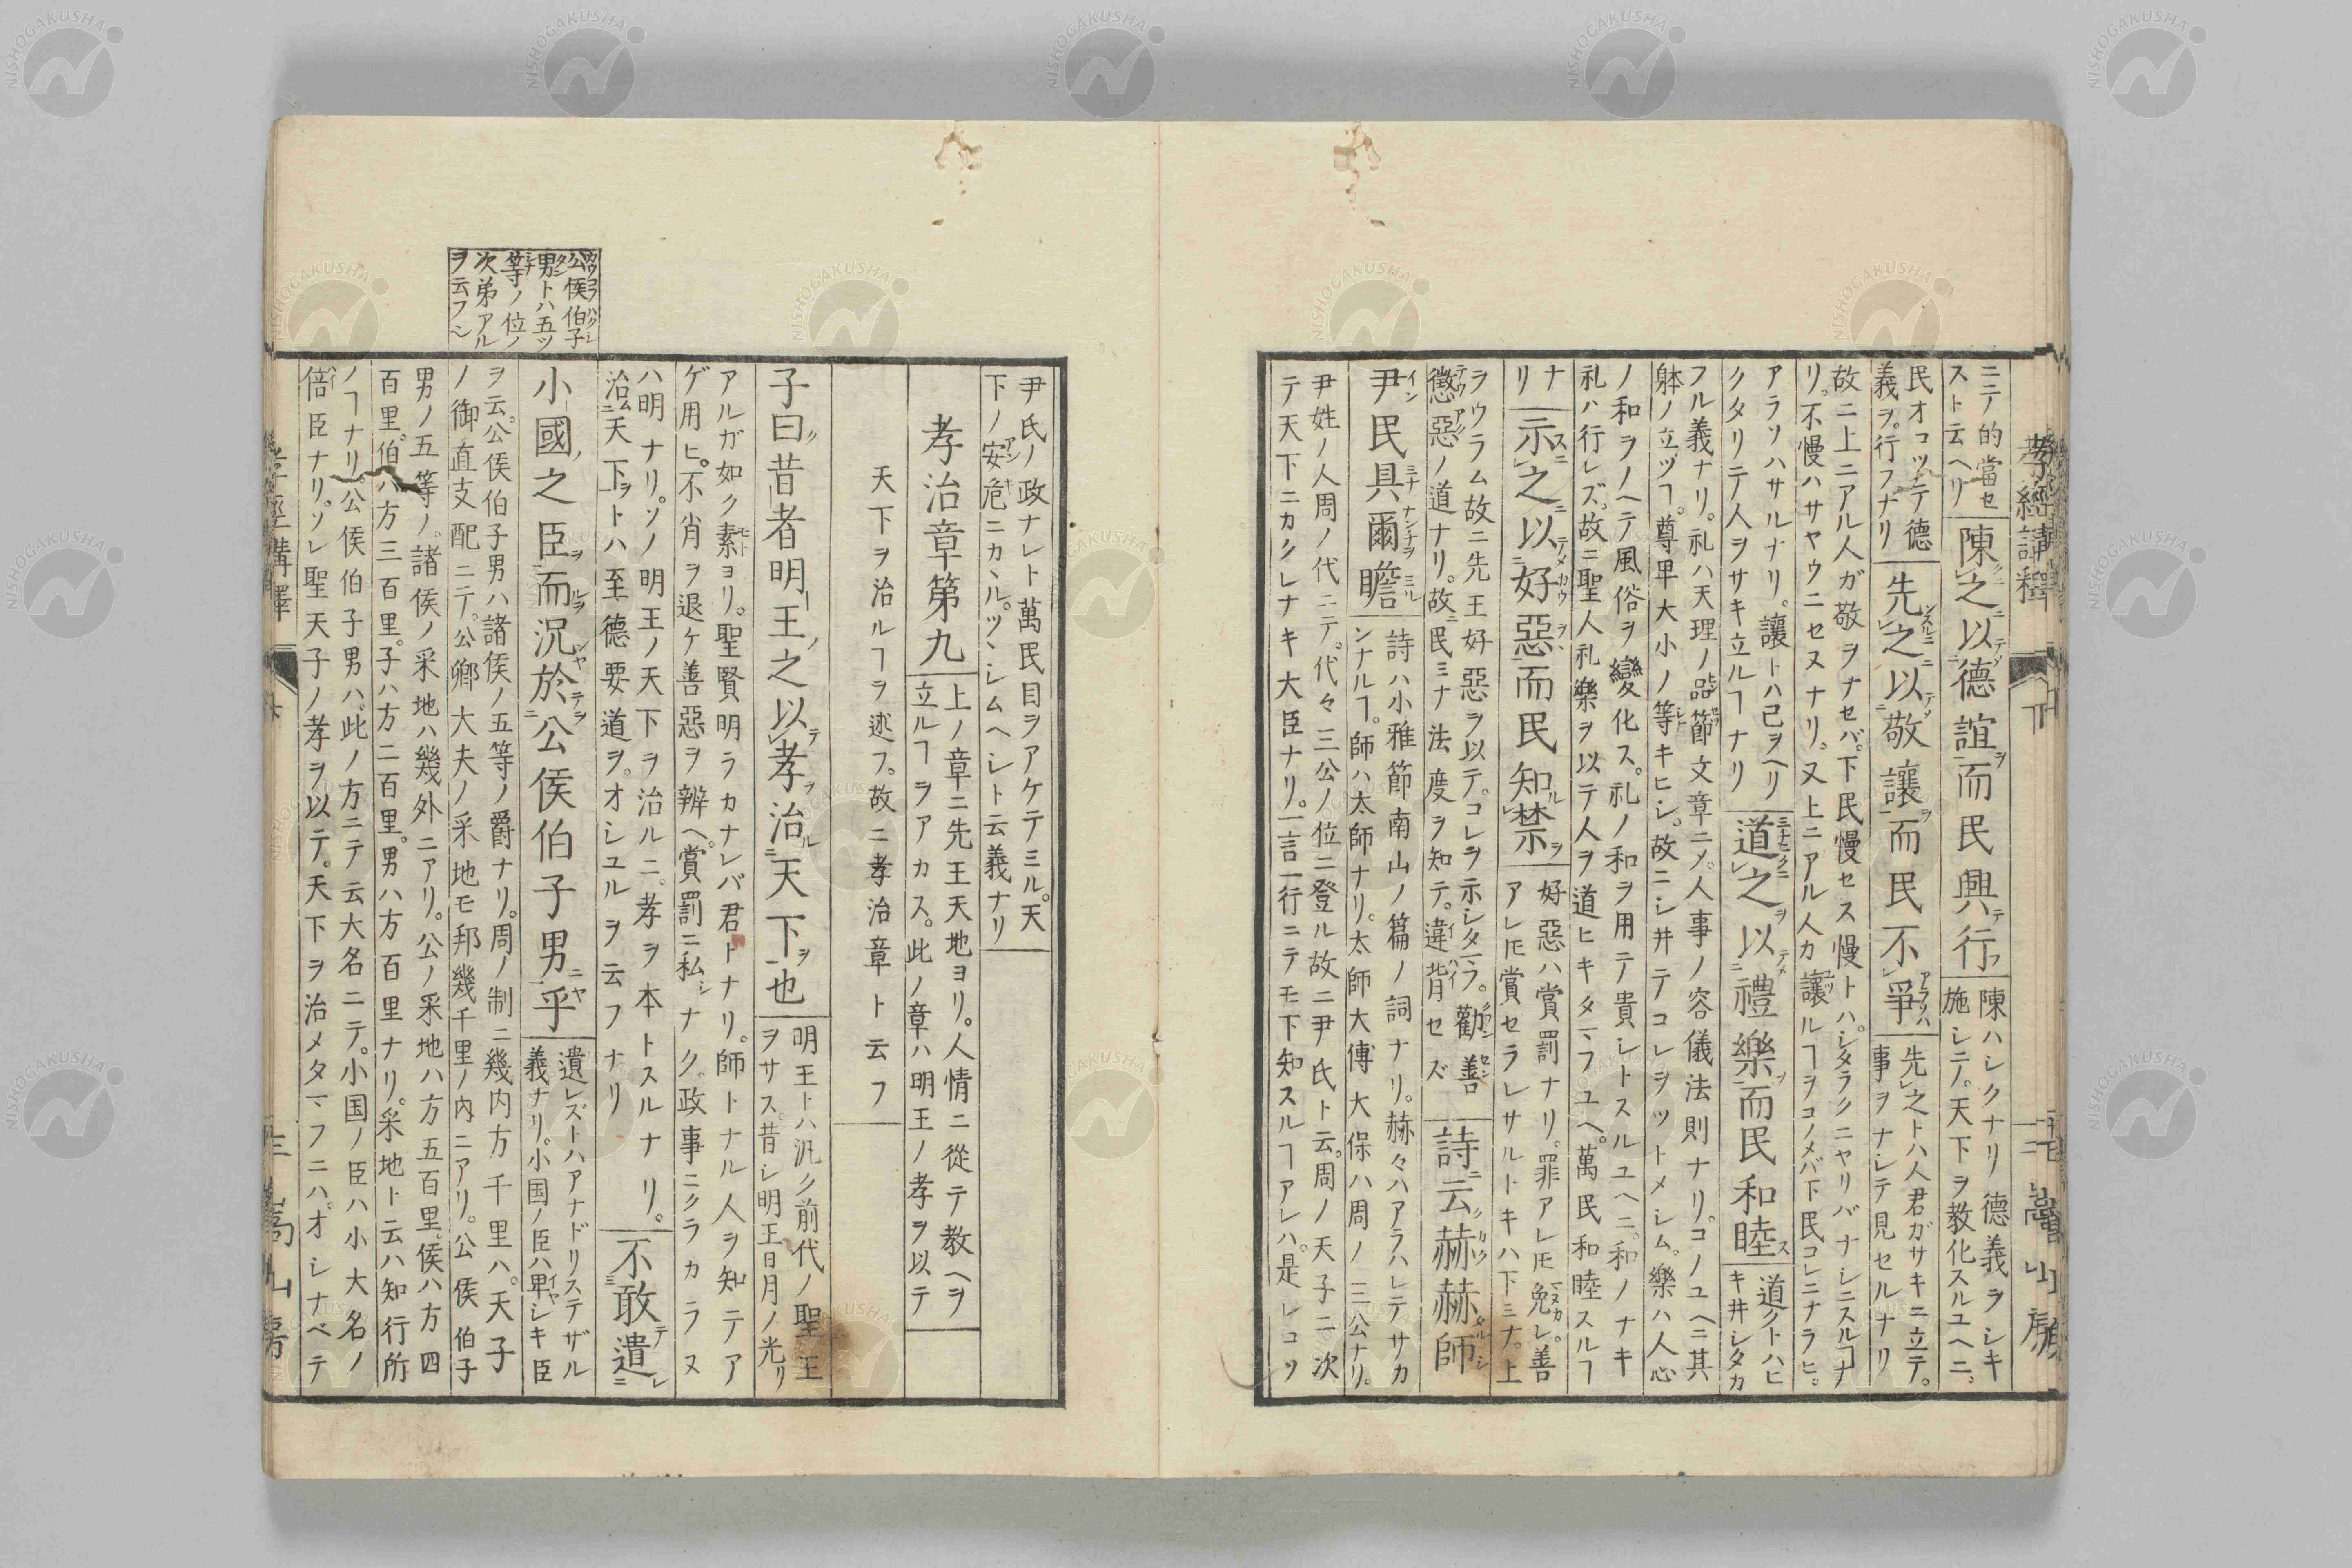 孝經講釋
嵩山房
ニテノ的當セ
スト云ヘリ
陳之以德誼而民興行
陳ハレクナリ德義ヲシキ
施シテ。天下ヲ教化スルユヘニ。
民オコツテ德
義ヲ。行フナリ
先之以敬讓而民不爭
先之トハ人君ガサキニ立テ。
事ヲナシテ見セルナリ
故ニ上ニアル人ガ敬ヲナセバ。下民慢セス慢トハ。シタラクニヤリバナシニスルヿナ
リ。不慢ハサヤウニセヌナリ。又上ニアル人カ讓ルヿヲコノメバ下民コレニナラヒ。
アラソハサルナリ。讓トハ己ヲヘリ
クタリテ人ヲサキ立ルヿナリ
道之以禮樂而民和睦
道クトハヒ
キ井シタカ
フル義ナリ。礼ハ天理ノ品節文章ニメ。人事ノ容儀法則ナリ。コノユヘニ其
躰ノ立ヅヿ。尊卑大小ノ等キヒシ。故ニシ井テコレヲツトメシム。樂ハ人心
ノ和ヲノヘテ風俗ヲ變化ス。礼ノ和ヲ用テ貴シトスルユヘニ。和ノナキ
礼ハ行レズ。故ニ聖人礼樂ヲ以テ人ヲ道ヒキタマフユヘ。萬民和睦スルヿ
ナ
リ
示之以好惡而民知禁
好惡ハ賞罰ナリ。罪アレ𪜈免レ。善
アレ𪜈賞セラレサルトキハ下ミナ。上
ヲウラム故ニ先王好惡ヲ以テ。コレヲ示シタマフ。勸善
懲惡ノ道ナリ。故ニ民ミナ法度ヲ知テ。違背セズ
詩云赫赫師
尹民具爾瞻
詩ハ小雅節南山ノ篇ノ詞ナリ。赫々ハアラハレテサカ
ンナルヿ。師ハ太師ナリ。太師大傅大保ハ周ノ三公ナリ。
尹姓ノ人周ノ代ニテ。代々三公ノ位ニ登ル故ニ尹氏ト云。周ノ天子ニ次
テ天下ニカクレナキ大臣ナリ。一言一行ニテモ下知スルヿアレバ。是レコソ
尹氏ノ政ナレト萬民目ヲアケテミル。天
下ノ安危ニカヽル。ツヽシムヘシト云義ナリ
孝治章第九
上ノ章ニ先王天地ヨリ。人情ニ從テ教ヘヲ
立ルヿヲアカス。此ノ章ハ明王ノ孝ヲ以テ
天下ヲ治ルヿヲ述フ。故ニ孝治章ト云フ
子曰昔者明王之以孝治天下也
明王トハ汎ク前代ノ聖王
ヲサス。昔シ明王日月ノ光リ
アルガ如ク素ヨリ。聖賢明ラカナレバ君トナリ。師トナル人ヲ知テア
ゲ用ヒ。不肖ヲ退ケ善惡ヲ辨ヘ。賞罰ニ私ナク。政事ニクラカラヌ
ハ明ナリ。ソノ明王ノ天下ヲ治ルニ。孝ヲ本トスルナリ。
治天下ヲトハ至德要道ヲ。オシユルヲ云フナリ
不敢遺
小國之臣而況於公侯伯子男乎
遺レズトハアナドリステザル
義ナリ。小国ノ臣ハ卑シキ臣
ヲ云。公侯伯子男ハ諸侯ノ五等ノ爵ナリ。周ノ制ニ幾内方千里ハ。天子
ノ御直支配ニテ。公卿大夫ノ采地モ邦幾千里ノ内ニアリ。公侯伯子
男ノ五等ノ。諸侯ノ采地ハ幾外ニアリ。公ノ采地ハ方五百里。侯ハ方四
百里。伯ハ方三百里。子ハ方二百里。男ハ方百里ナリ。采地ト云ハ知行所
ノヿナリ。公侯伯子男ハ。此ノ方ニテ云大名ニテ。小国ノ臣ハ小大名ノ
倍臣ナリ。ソレ聖天子ノ孝ヲ以テ。天下ヲ治メタマフニハ。オシナベテ
公侯伯子
男トハ五ツ
等ノ位ノ
次弟アル
ヲ云フ